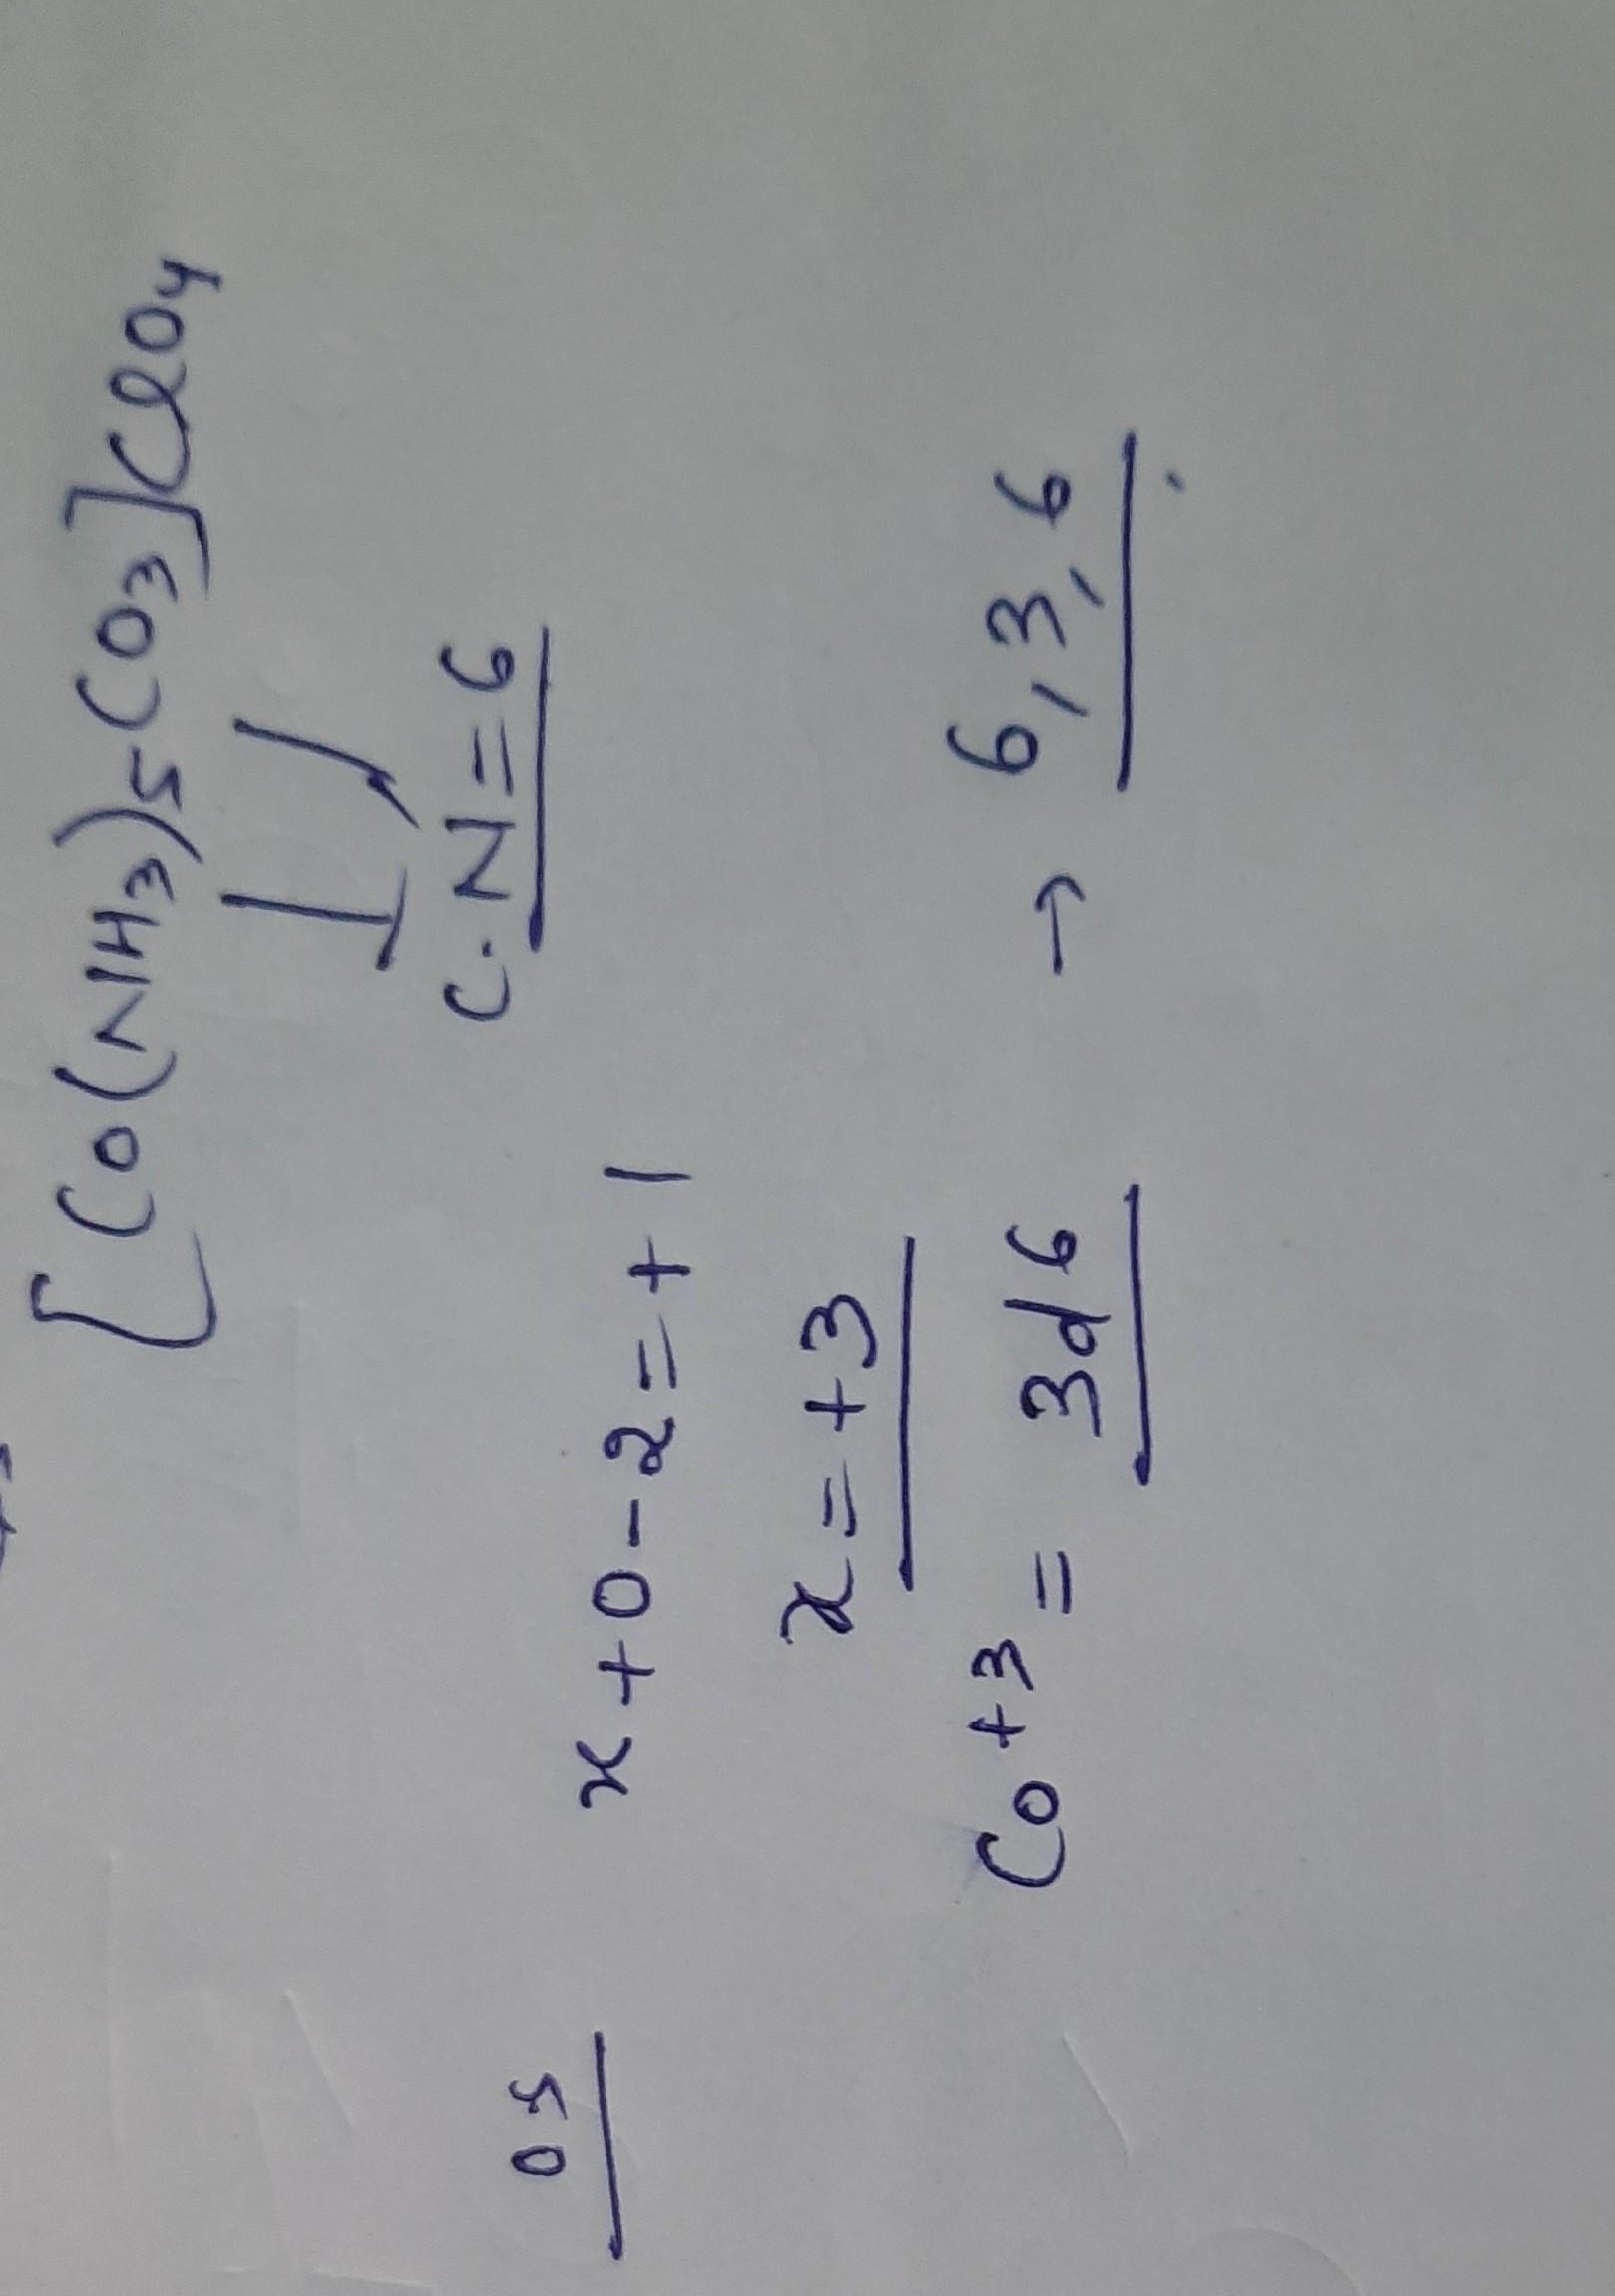 [Co(NH3)5CO3]ClO4
C.N=6
OS
x+0-2=+1
x=+3
Co+3 = 3d6 → 6,3,6